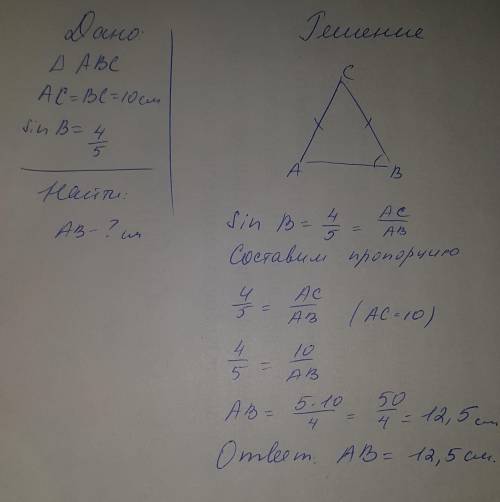 Дано:
Δ ABC
AC = BC = 10 см
sin B = 4/5
Найти:
AB - ? см
Решение
C
A
B
sin B = 4/5 = AC/AB
Составим пропорцию
4/5 = AC/AB (AC = 10)
4/5 = 10/AB
AB = 5·10/4 = 50/4 = 12,5 см
Ответ. AB = 12,5 см.